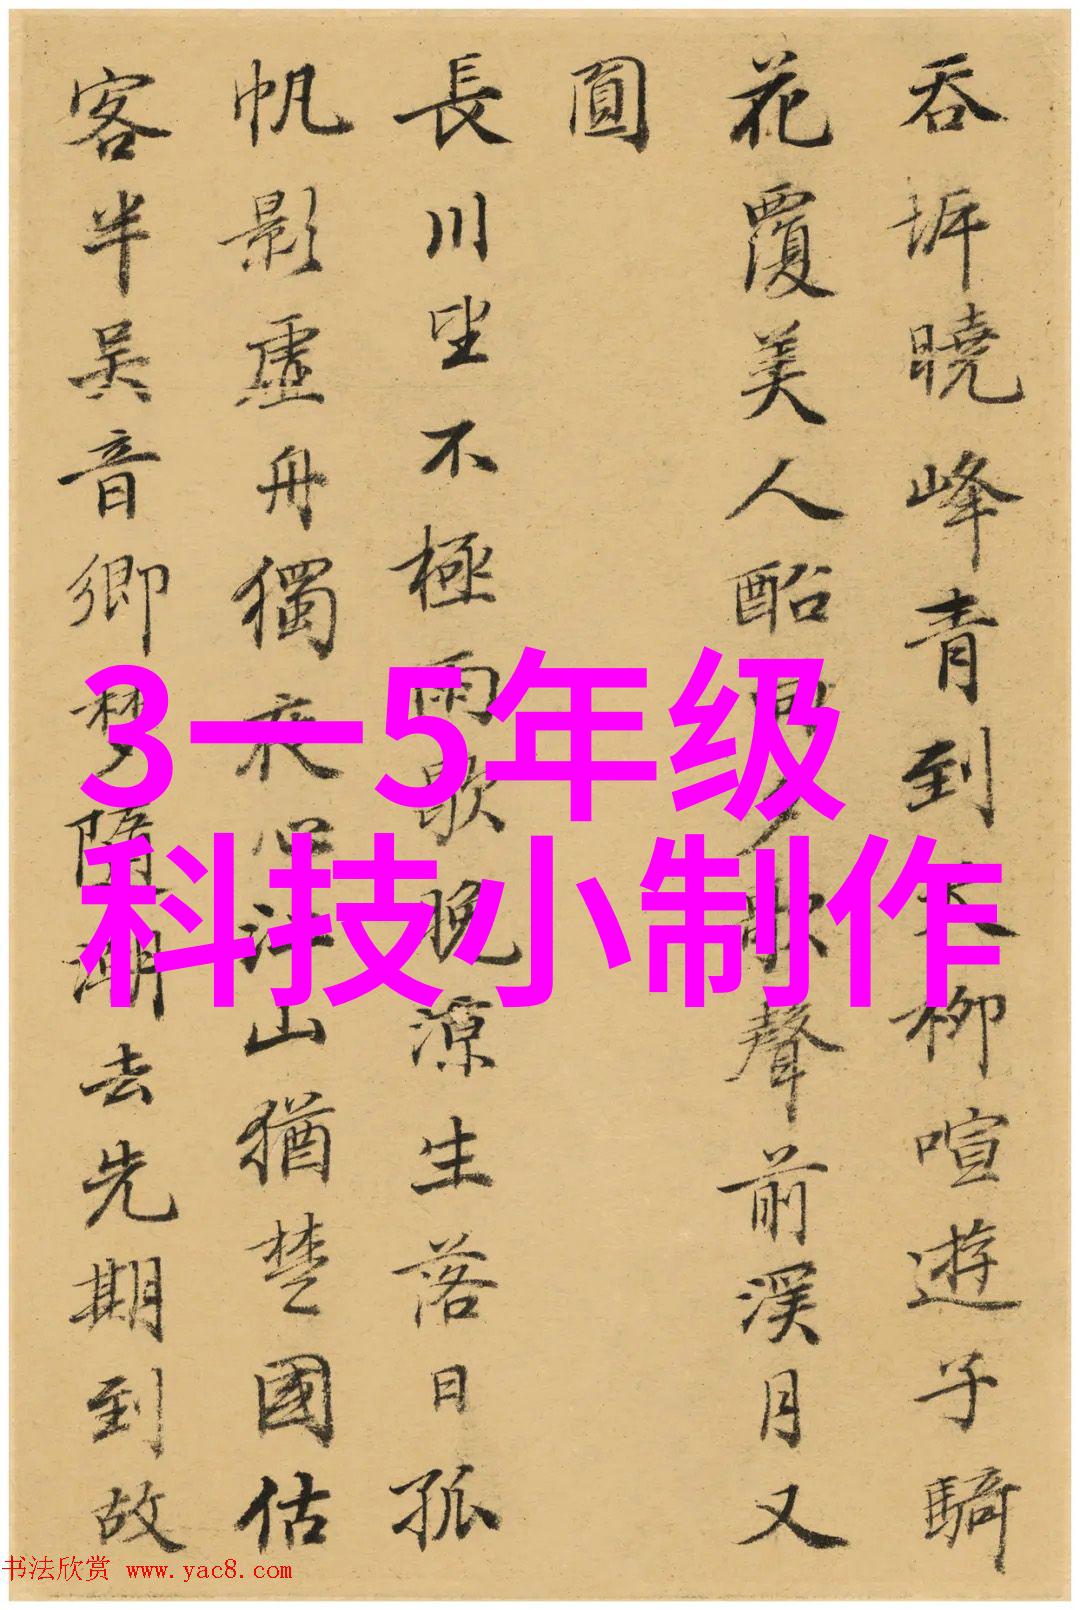 吞坼曉峰青到柳喧遊子騎
花覆美人歌聲前溪月又
圓
長川坐不極雨歇晚涼生落日孤
帆影虛舟獨夜心江山猶楚國估
客半吳音鄉夢隨潮去先期到故
3一5年级
科技小制作
书法欣赏 www.yac8.com